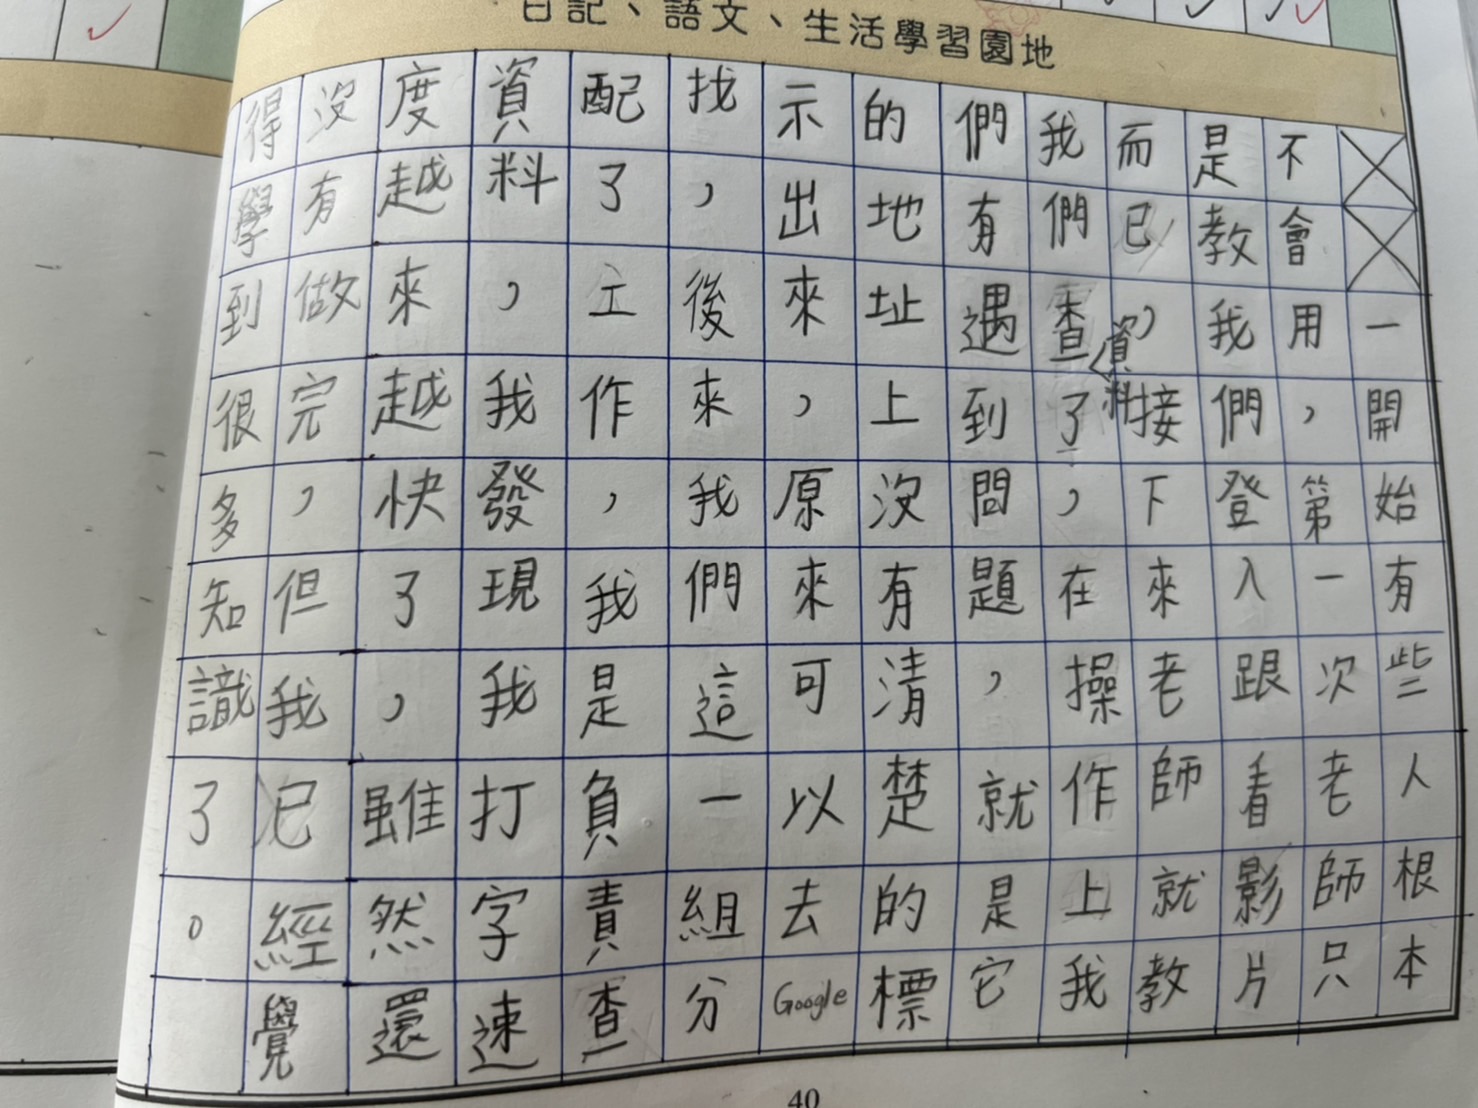 日記、語文、生活學習園地
一開始有些人根本
不會用，第一次老師只
是教我們登入跟看影片
而已，資料接下來老師就教
我們查了，在操作上我
們有遇到問題，就是它
的地址上沒有清楚的標
示出來，原來可以去Google
找，後來我們這一組分
配了工作，我是負責查
資料，我發現我打字速
度越來越快了，雖然還
沒有做完，但我已經覺
得學到很多知識了。
40